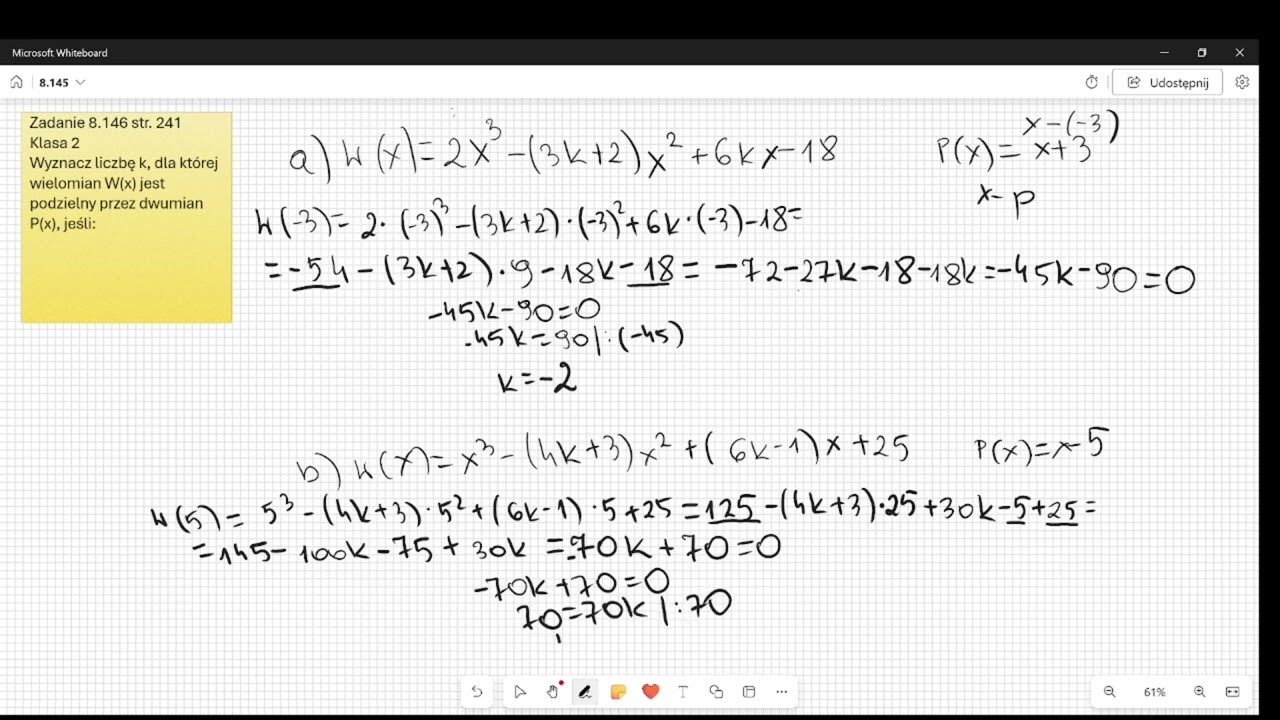 Microsoft Whiteboard
8.145
Udostępnij
Zadanie 8.146 str. 241
Klasa 2
Wyznacz liczbę k, dla której
wielomian W(x) jest
podzielny przez dwumian
P(x), jeśli:
x-(-3)
a) W(x)=2x³-(3k+2)x²+6kx-18 P(x)=x+3
x-p
W(-3)=2·(-3)³-(3k+2)·(-3)²+6k·(-3)-18=
=-54-(3k+2)·9-18k-18=-72-27k-18-18k=-45k-90=0
-45k-90=0
-45k=90|:(-45)
k=-2
b) W(x)=x³-(4k+3)x²+(6k-1)x+25 P(x)=x-5
W(5)=5³-(4k+3)·5²+(6k-1)·5+25=125-(4k+3)·25+30k-5+25=
=145-100k-75+30k=-70k+70=0
-70k+70=0
70=70k|:70
61%